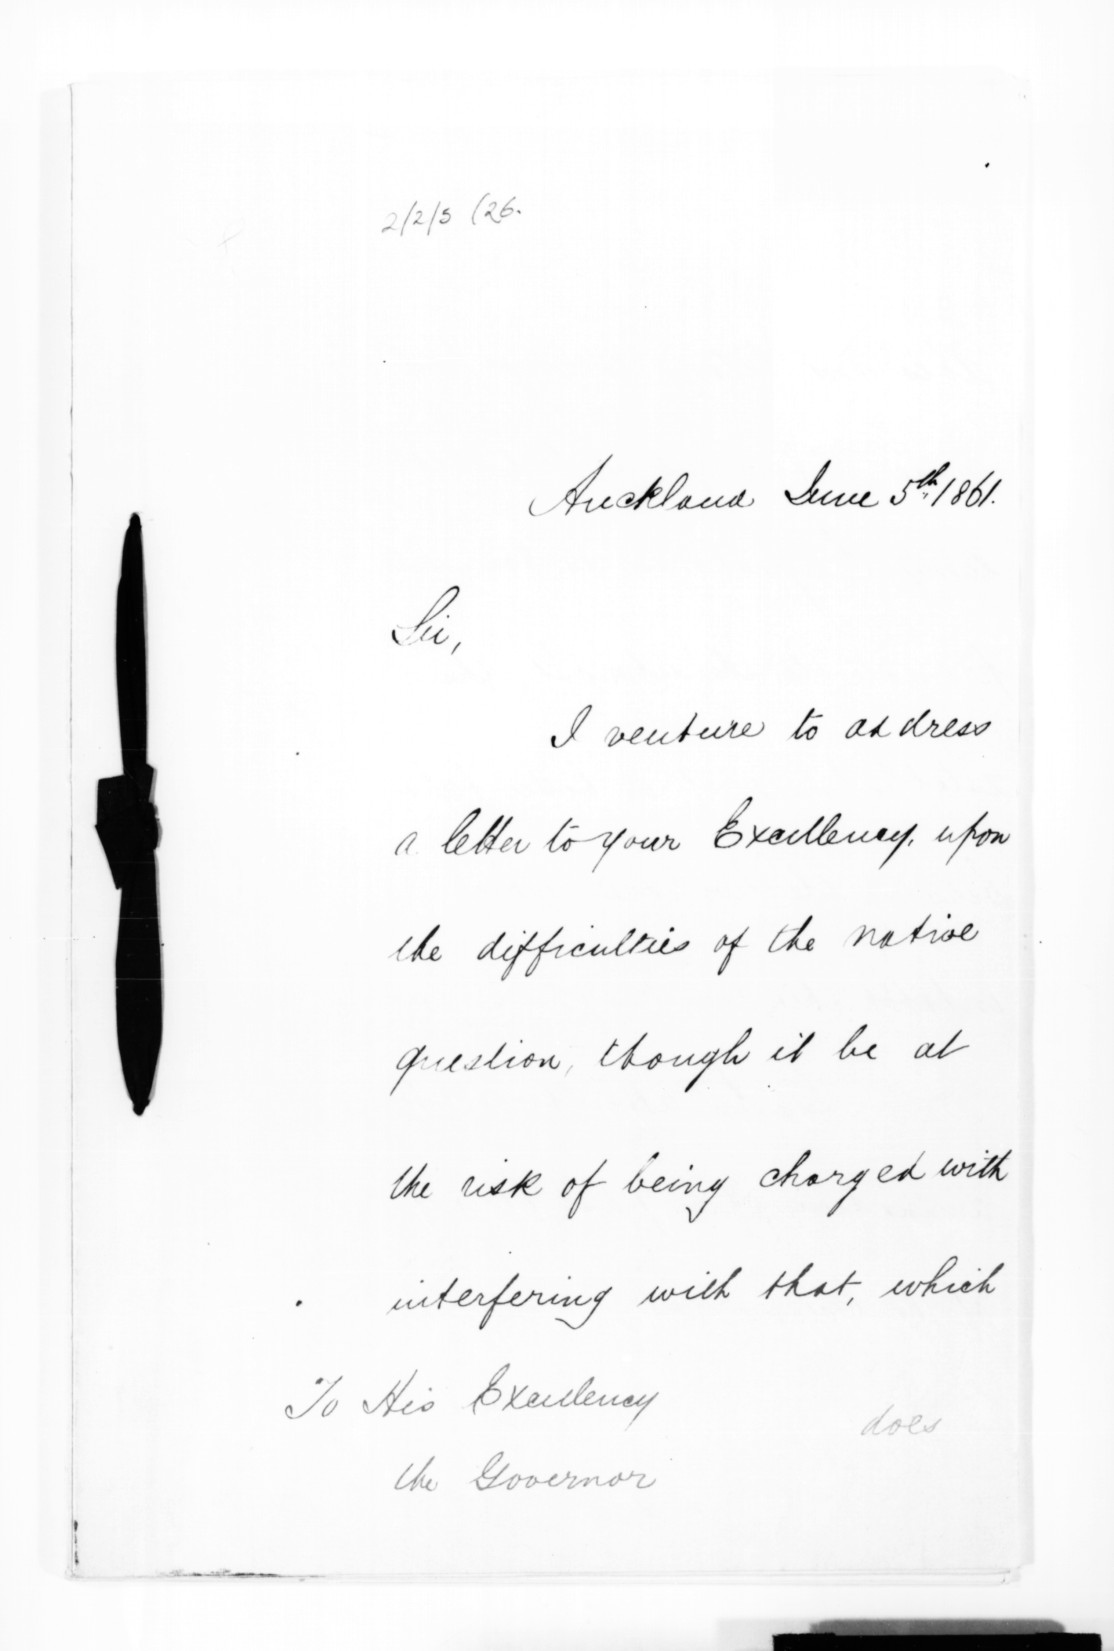 2/2/5 (26.
Auckland June 5th, 1861.
Sir,
I venture to address
a letter to your Excellency, upon
the difficulties of the native
question, though it be at
the risk of being charged with
interfering with that, which
To His Excellency
does
the Governor